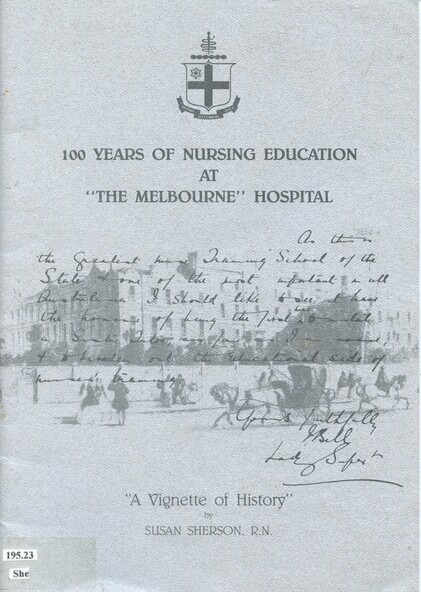 100 YEARS OF NURSING EDUCATION
AT
"THE MELBOURNE" HOSPITAL
As this is
the Greatest Training School of the
State & one of the most important in all
Australasia I should like to see it have
the honour of being the first
& to broaden out the educational side of
nurses training
Yours faithfully
JBell
Lady Supt
"A Vignette of History"
by
SUSAN SHERSON, R.N.
195.23
She